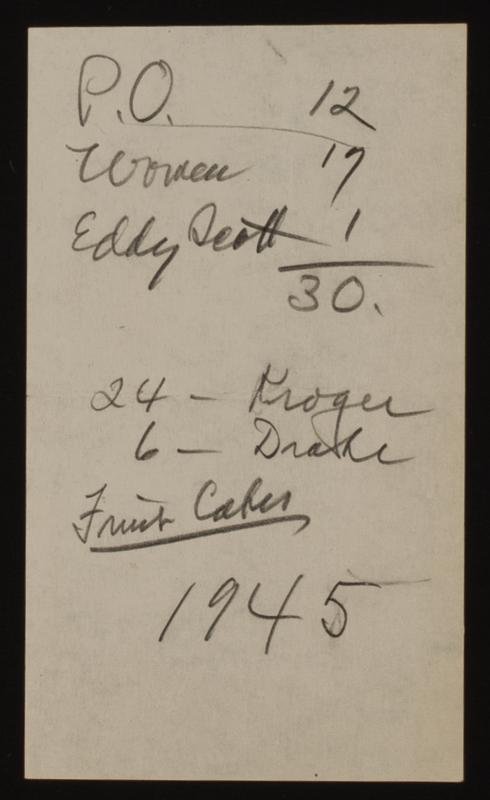 P.O. 12
Women 17
Eddy Scott 1
30.
24 - Kroger
6 - Drake
Fruit Cakes
1945